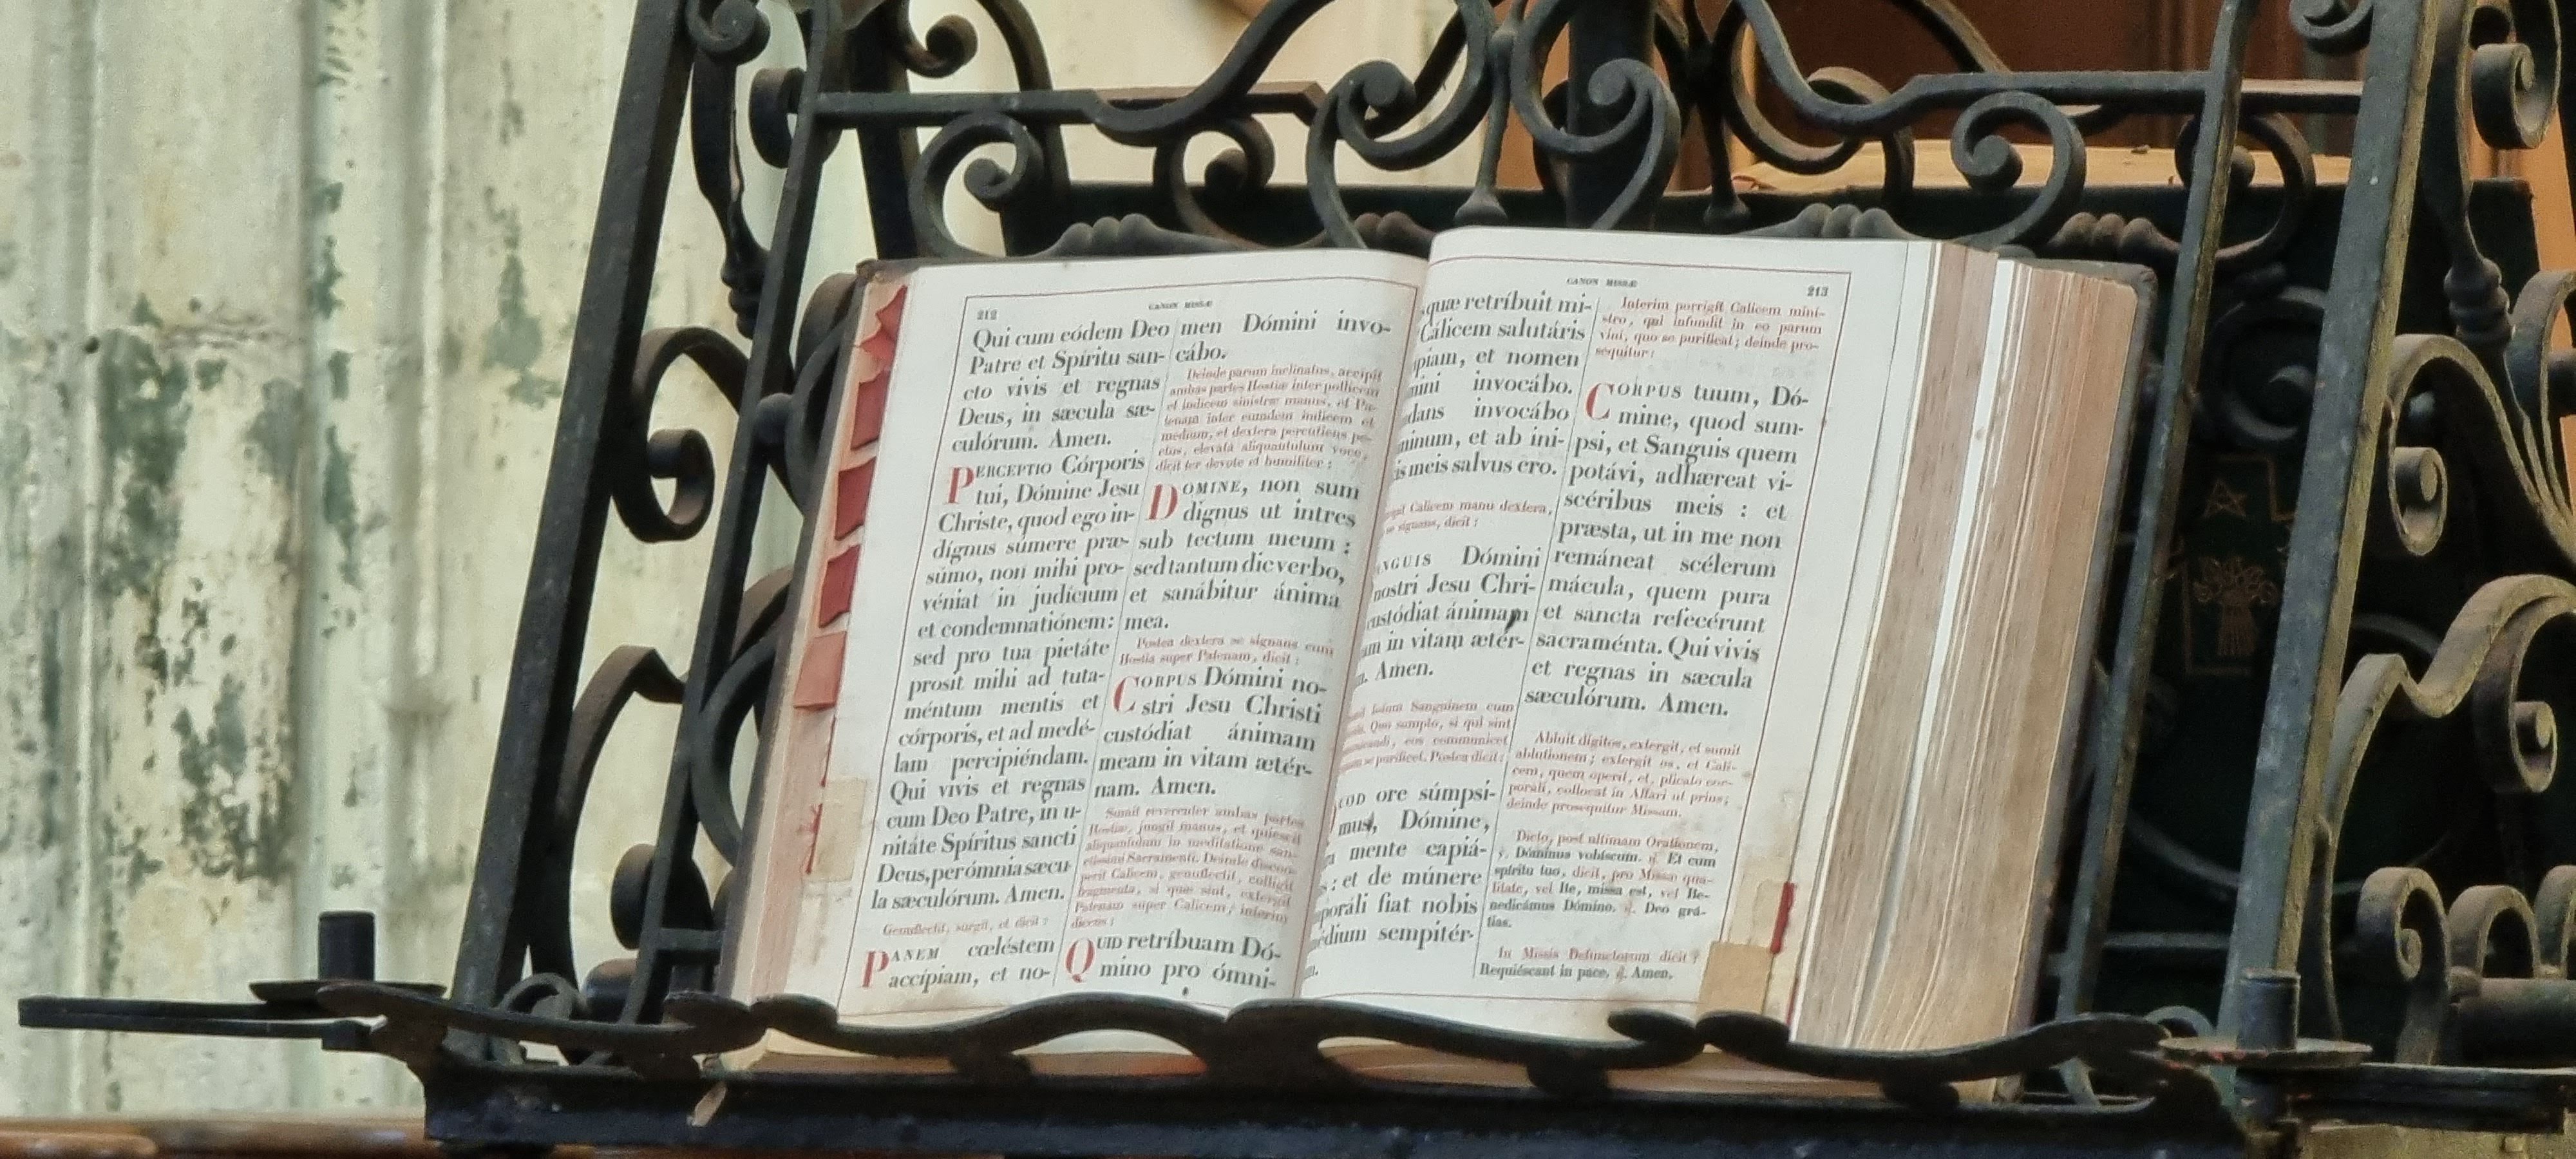 212
CANON MISSÆ
Qui cum eódem Deo
Patre et Spíritu san-
cto vivis et regnas
Deus, in sæcula sæ-
culórum. Amen.
PERCEPTIO Córporis
tui, Dómine Jesu
Christe, quod ego in-
dígnus súmere præ-
súmo, non mihi pro-
véniat in judícium
et condemnatiónem:
sed pro tua pietáte
prosit mihi ad tuta-
méntum mentis et
córporis, et ad medé-
lam percipiéndam.
Qui vivis et regnas
cum Deo Patre, in u-
nitáte Spíritus sancti
Deus, per ómnia sæcu-
la sæculórum. Amen.
Genuflectit, surgit, et dicit:
PANEM cœléstem
accípiam, et no-
men Dómini invo-
cábo.
Deinde parum inclinatus, accipit
ambas partes Hostiæ inter pollicem
et indicem sinistræ manus, et Pa-
tenam inter eumdem indicem et
medium, et dextera percutiens pe-
ctus, elevata aliquantulum voce,
dicit ter devote et humiliter:
DOMINE, non sum
dignus ut intres
sub tectum meum:
sed tantum dic verbo,
et sanábitur ánima
mea.
Postea dextera se signans cum
Hostia super Patenam, dicit:
CORPUS Dómini no-
stri Jesu Christi
custódiat ánimam
meam in vitam ætér-
nam. Amen.
Sumit reverenter ambas partes
Hostiæ, jungit manus, et quiescit
aliquantulum in meditatione san-
ctissimi Sacramenti. Deinde disco-
perit Calicem, genuflectit, colligit
fragmenta, si quæ sint, extergit
Patenam super Calicem, interim
dicens:
QUID retríbuam Dó-
mino pro ómni-
CANON MISSÆ
213
quæ retríbuit mi-
Cálicem salutáris
piam, et nomen
mini invocábo.
dans invocábo
minum, et ab ini-
is meis salvus ero.
Calicem manu dextera,
se signans, dicit:
NGUIS Dómini
nostri Jesu Chri-
custódiat ánimam
am in vitam ætér-
. Amen.
totum Sanguinem cum
Quo sumpto, si qui sint
municandi, eos communicet
se purificet. Postea dicit:
UOD ore súmpsi-
mus, Dómine,
mente capiá-
: et de múnere
poráli fiat nobis
édium sempitér-
Interim porrigit Calicem mini-
stro, qui infundit in eo parum
vini, quo se purificat; deinde pro-
sequitur:
CORPUS tuum, Dó-
mine, quod sum-
psi, et Sanguis quem
potávi, adhæreat vi-
scéribus meis : et
præsta, ut in me non
remáneat scélerum
mácula, quem pura
et sancta refecérunt
sacraménta. Qui vivis
et regnas in sæcula
sæculórum. Amen.
Abluit digitos, extergit, et sumit
ablutionem; extergit os, et Cali-
cem, quem operit, et, plicato cor-
porali, collocat in Altari ut prius;
deinde prosequitur Missam.
Dicto, post ultimam Orationem,
℣. Dóminus vobíscum. ℟. Et cum
spíritu tuo, dicit, pro Missæ qua-
litate, vel Ite, missa est, vel Be-
nedicámus Dómino. ℟. Deo grá-
tias.
In Missis Defunctorum dicit:
Requiéscant in pace. ℟. Amen.